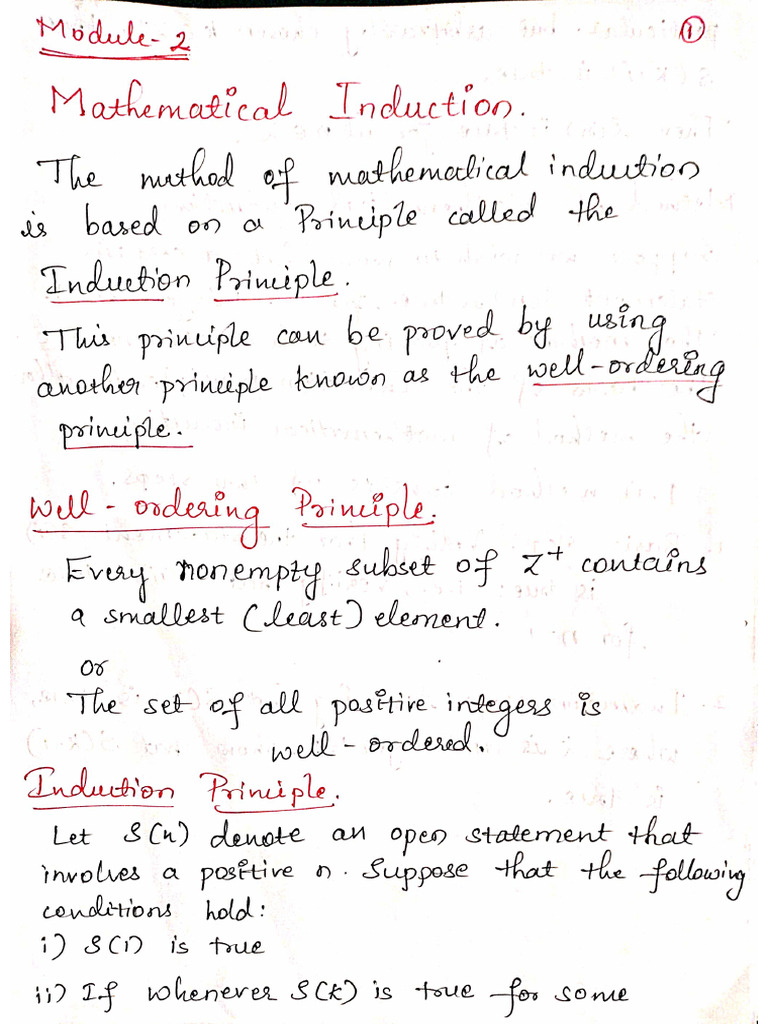 Module-2
①
Mathematical Induction.
The method of mathematical induction
is based on a Principle called the
Induction Principle.
This principle can be proved by using
another principle known as the well-ordering
principle.
Well-ordering Principle.
Every nonempty subset of Z⁺ contains
a smallest (least) element.
or
The set of all positive integers is
well-ordered.
Induction Principle.
Let S(n) denote an open statement that
involves a positive n. Suppose that the following
conditions hold:
i) S(1) is true
ii) If whenever S(k) is true for some